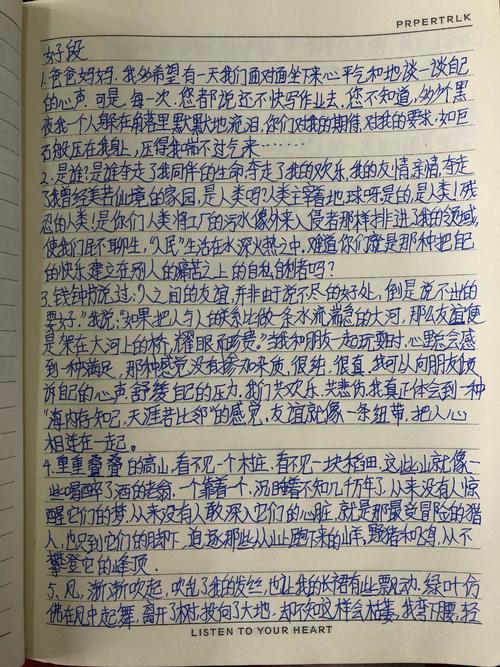 PRPERTRLK
好段
1.爸爸妈妈.我多希望有一天我们面对面坐下来心平气和地谈一谈自己
的心声.可是.每一次.您都说还不快写作业去,您不知道,多少个黑
夜我一个人躲在角落里默默地流泪,你们对我的期待,对我的要求.如巨
石般压在我身上,压得我喘不过气来……
2.是谁?是谁夺走了我同伴的生命夺走了我的欢乐,我的友情亲情,夺走
了我曾经美若仙境的家园,是人类吗?人类主宰着地球呀是的,是人类!残
忍的人类!是你们人类将工厂的污水像外来入侵者那样排进了我的领域,
使我们民不聊生,"人民"生活在水深火热之中.难道你们就是那种把自己
的快乐建立在别人的痛苦之上的自私自利者吗?
3.钱钟书说过:"人之间的友谊,并非由于说不尽的好处,倒是说不出的
要好."我说:"如果把人与人的关系比做一条水流湍急的大河,那么友谊便
是架在大河上的桥,耀眼而夺目."当我和朋友一起玩耍时,心里总会感
到一种满足,那种感觉没有掺加杂质,很纯.很真,我可以向朋友倾
诉自己的心声.舒缓自己的压力,我们共欢乐.共悲伤我真正体会到一种
"海内存知己,天涯若比邻"的感觉,友谊就像一条纽带,把人心
相连在一起。
4.重重叠叠的高山,看不见一个村庄.看不见一块稻田,这些山就像一
些喝醉了酒的老翁.一个靠着一个,沉睡着不知几千万年了,从来没有人惊
醒它们的梦,从来没有人敢深入它们的心脏,就是那最爱冒险的猎
人,也只到它们的脚下.追逐那些从山上跑下来的山羊,野猪和飞鸟,从不
攀登它的峰顶.
5、风,渐渐吹起,吹乱了我的发丝,也让我的长裙有些飘动.绿叶仿
佛在风中起舞,离开了树,投向了大地.却不知这样会枯萎,我弯下腰,轻
LISTEN TO YOUR HEART